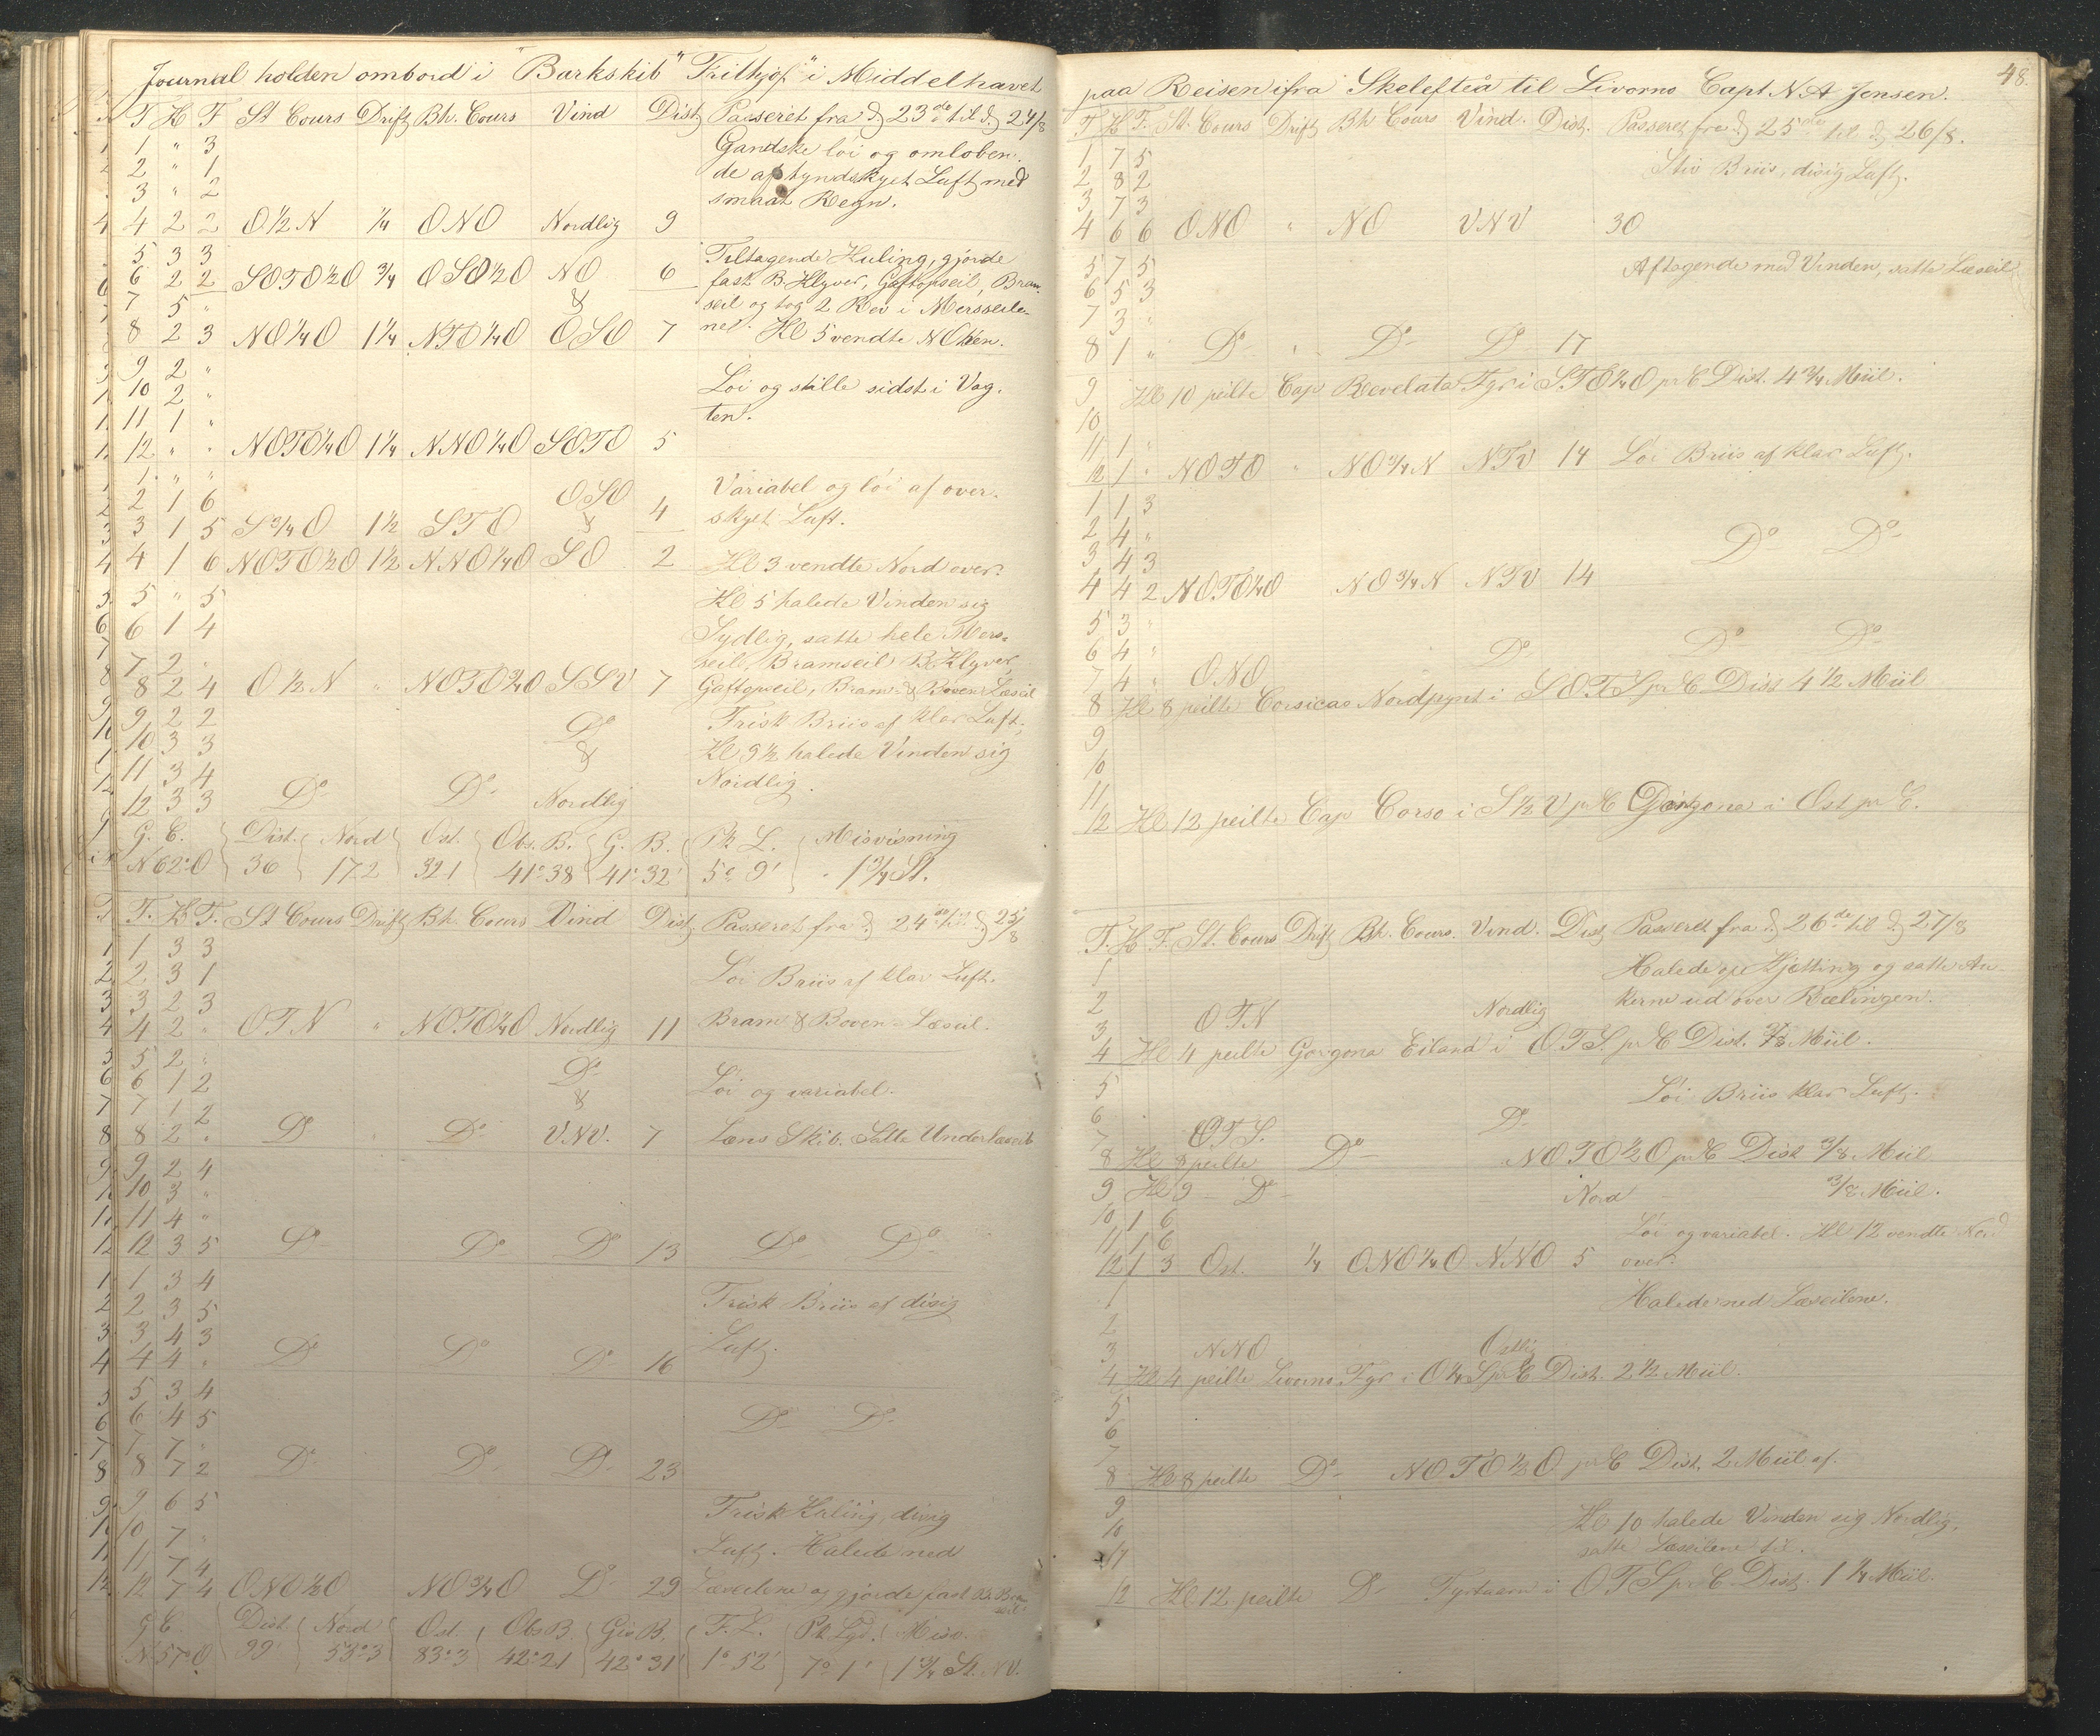 Journal holden ombord i "Barkskib" "Frithjof" i Middelhavet
T H F St Cours Drift Bh. Cours Vind Dist Passeret fra d 23de til d 24/8
1 " 3 Gandske løi og omløben-
2 " 1 de af tyndskyet Luft med
3 " 2 smaat Regn.
4 2 2 O½N ¼ ONO Nordlig 9
5 3 3 Tiltagende Kuling, gjorde
6 2 2 SOTO½O ¾ OSO½O NO 6 fast B. Klyver, Gaftopseil, Bram-
7 5 " & seil og tog 2 Rev i Mersseile-
8 2 3 NO¼O 1¼ NTO¼O OSO 7 ne. Kl 5 vendte NOten.
9 2 "
10 2 " Løi og stille sidst i Vag-
11 1 " ten.
12 " " NOTO¼O 1¼ NNO¼O SOTO 5
1 " "
2 1 6 OSO Variabel og løi af over-
3 1 5 S¾O 1½ STO & 4 skyet Luft.
4 1 6 NOTO½O 1½ NNO¼O SO 2 Kl 3 vendte Nord over.
5 " 5 Kl 5 halede Vinden sig
6 1 4 Sydlig, satte hele Mers-
7 2 " seil, Bramseil B. Klyver,
8 2 4 O½N " NOTO¾O SSV 7 Gaftopseil, Bram- & Boven-Læseil
9 2 2 Do Frisk Briis af klar Luft,
10 3 3 & Kl 9½ halede Vinden sig
11 3 4 Nordlig.
12 3 3 Do Do Nordlig
G. C. Dist. Nord Ost. Obs. B. G. B. Pk L. Misvisning
N62°O 36 172 321 41°38 41°32' 5° 9' 1¾ St.
T. K F. St Cours Drift Bh. Cours Vind Dist. Passeret fra d 24de til d 25/8
1 3 3
2 3 1 Løi Briis af klar Luft.
3 2 3
4 2 " OTN " NOTO¼O Nordlig 11 Bram & Boven-Læseil.
5 2 "
6 1 2 Do Løi og variabel.
7 1 2 &
8 2 " Do " Do VNV. 7 Læns Skib. Satte Underlæseil
9 2 4
10 3 "
11 4 "
12 3 5 Do Do Do 13 Do Do
1 3 4
2 3 5 Frisk Briis af disig
3 4 3 Luft.
4 4 " Do Do Do 16
5 3 4
6 4 5 Do Do
7 7 "
8 7 2 Do Do Do 23
9 6 5 Frisk Kuling, disig
10 7 " Luft. Halede ned
11 7 4
12 7 4 ONO½O NO¾O Do 29 Læseilene og gjorde fast Bram-
seil
G C Dist. Nord Ost. Obs B. Gis B. F. L. Pk Lgd. Misv.
N57°O 99' 53°3 83°3 42°21 42°31' 1°52' 7°1' 1¾ St. NV.
48.
paa Reisen ifra Skelefteå til Livorno Capt N. A Jensen.
T K F. St. Cours Drift Bh Cours Vind. Dist. Passeret fra d 25de til d 26/8.
1 7 5 Stiv Briis, disig Luft.
2 8 2
3 7 3
4 6 6 ONO " NO VNV 30
5 7 5 Aftagende med Vinden, satte Læseil
6 5 3
7 3 "
8 1 " Do " Do Do 17
9 Kl 10 peilte Cap Revelata Fyr i S.TO¼O pr C Dist. 4¾ Miil.
10
11 1 "
12 1 " NOTO " NO¾N NTV 14 Løi Briis af klar Luft.
1 1 3
2 4 " Do Do
3 4 3
4 4 2 NOTO¼O NO¾N NTV 14
5 3 "
6 4 " Do Do Do
7 4 " ONO
8 Kl 8 peilte Corsicas Nordpynt i SOTS pr C Dist 4½ Miil
9
10
11
12 Kl 12 peilte Cap Corso i S½V pr C Gorgone i Ost pr C.
T. K F. St. Cours Drift Bh. Cours. Vind. Dist Passeret fra d 26de til d 27/8
1 Halede op Kjetting og satte An-
2 Nordlig kerne ud over Rælingen.
3 OTN
4 Kl 4 peilte Gorgona Eiland i OTS. pr C Dist. ⅞ Miil.
5 Løi Briis klar Luft.
6 Do
7 OTS.
8 Kl 8 peilte Do NOTO½O pr C Dist ⅜ Miil
9 Kl 9 - Do - Nord - ⅜ Miil.
10 1 6
11 1 6 Løi og variabel. Kl 12 vendte Nord
12 1 3 Ost. ¼ ONO¼O NNO 5 over.
1 Halede ned Læseilene.
2
3 NNO Ostlig
4 Kl 4 peilte Livorno Fyr i O¼S pr C Dist. 2½ Miil.
5
6
7
8 Kl 8 peilte Do NOTO½O pr C Dist. 2 Miil af.
9
10 Kl 10 halede Vinden sig Nordlig,
11 satte Læseilene til.
12 Kl 12 peilte Do Fyrtaarn i OTS pr C Dist. 1¼ Miil.